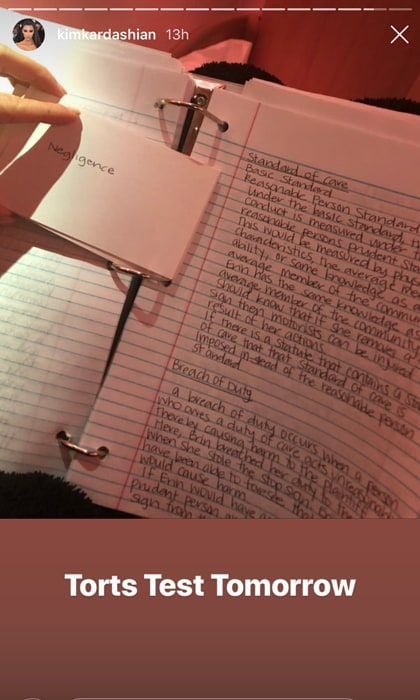 kimkardashian 13h
Negligence
Standard of Care
Basic Standard
Reasonable Person Standard
Under the basic standard,
conduct is measured under
reasonable persons prudent
This would be measured by
characteristics, the average
ability, or same knowledge as
average member of the community
Erin has the same knowledge as
average member of the community
should know that if she removes a
sign then motorists can be injured
result of her actions
If there is a statute that contains a
of care that that standard of care is
imposed instead of the reasonable person
standard
Breach of Duty
a breach of duty occurs when a person
who owes a duty of care acts
thereby causing harm to the plaintiff
Here, Erin breached her duty to
when she stole the stop sign
have been able to foresee that
would cause harm
If Erin would have
prudent person
sign from
Torts Test Tomorrow